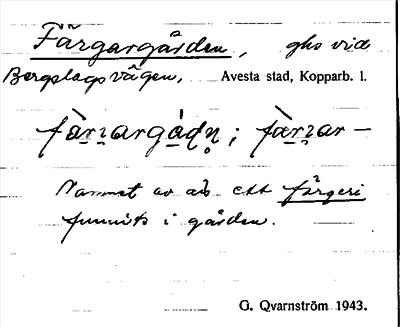 Färgargården, ghs vid
Bergslagsvägen, Avesta stad, Kopparb. l.
fàrɿargádn̥; fàrɿar –
Namnet av att ett färgeri
funnits i gården.
G. Qvarnström 1943.